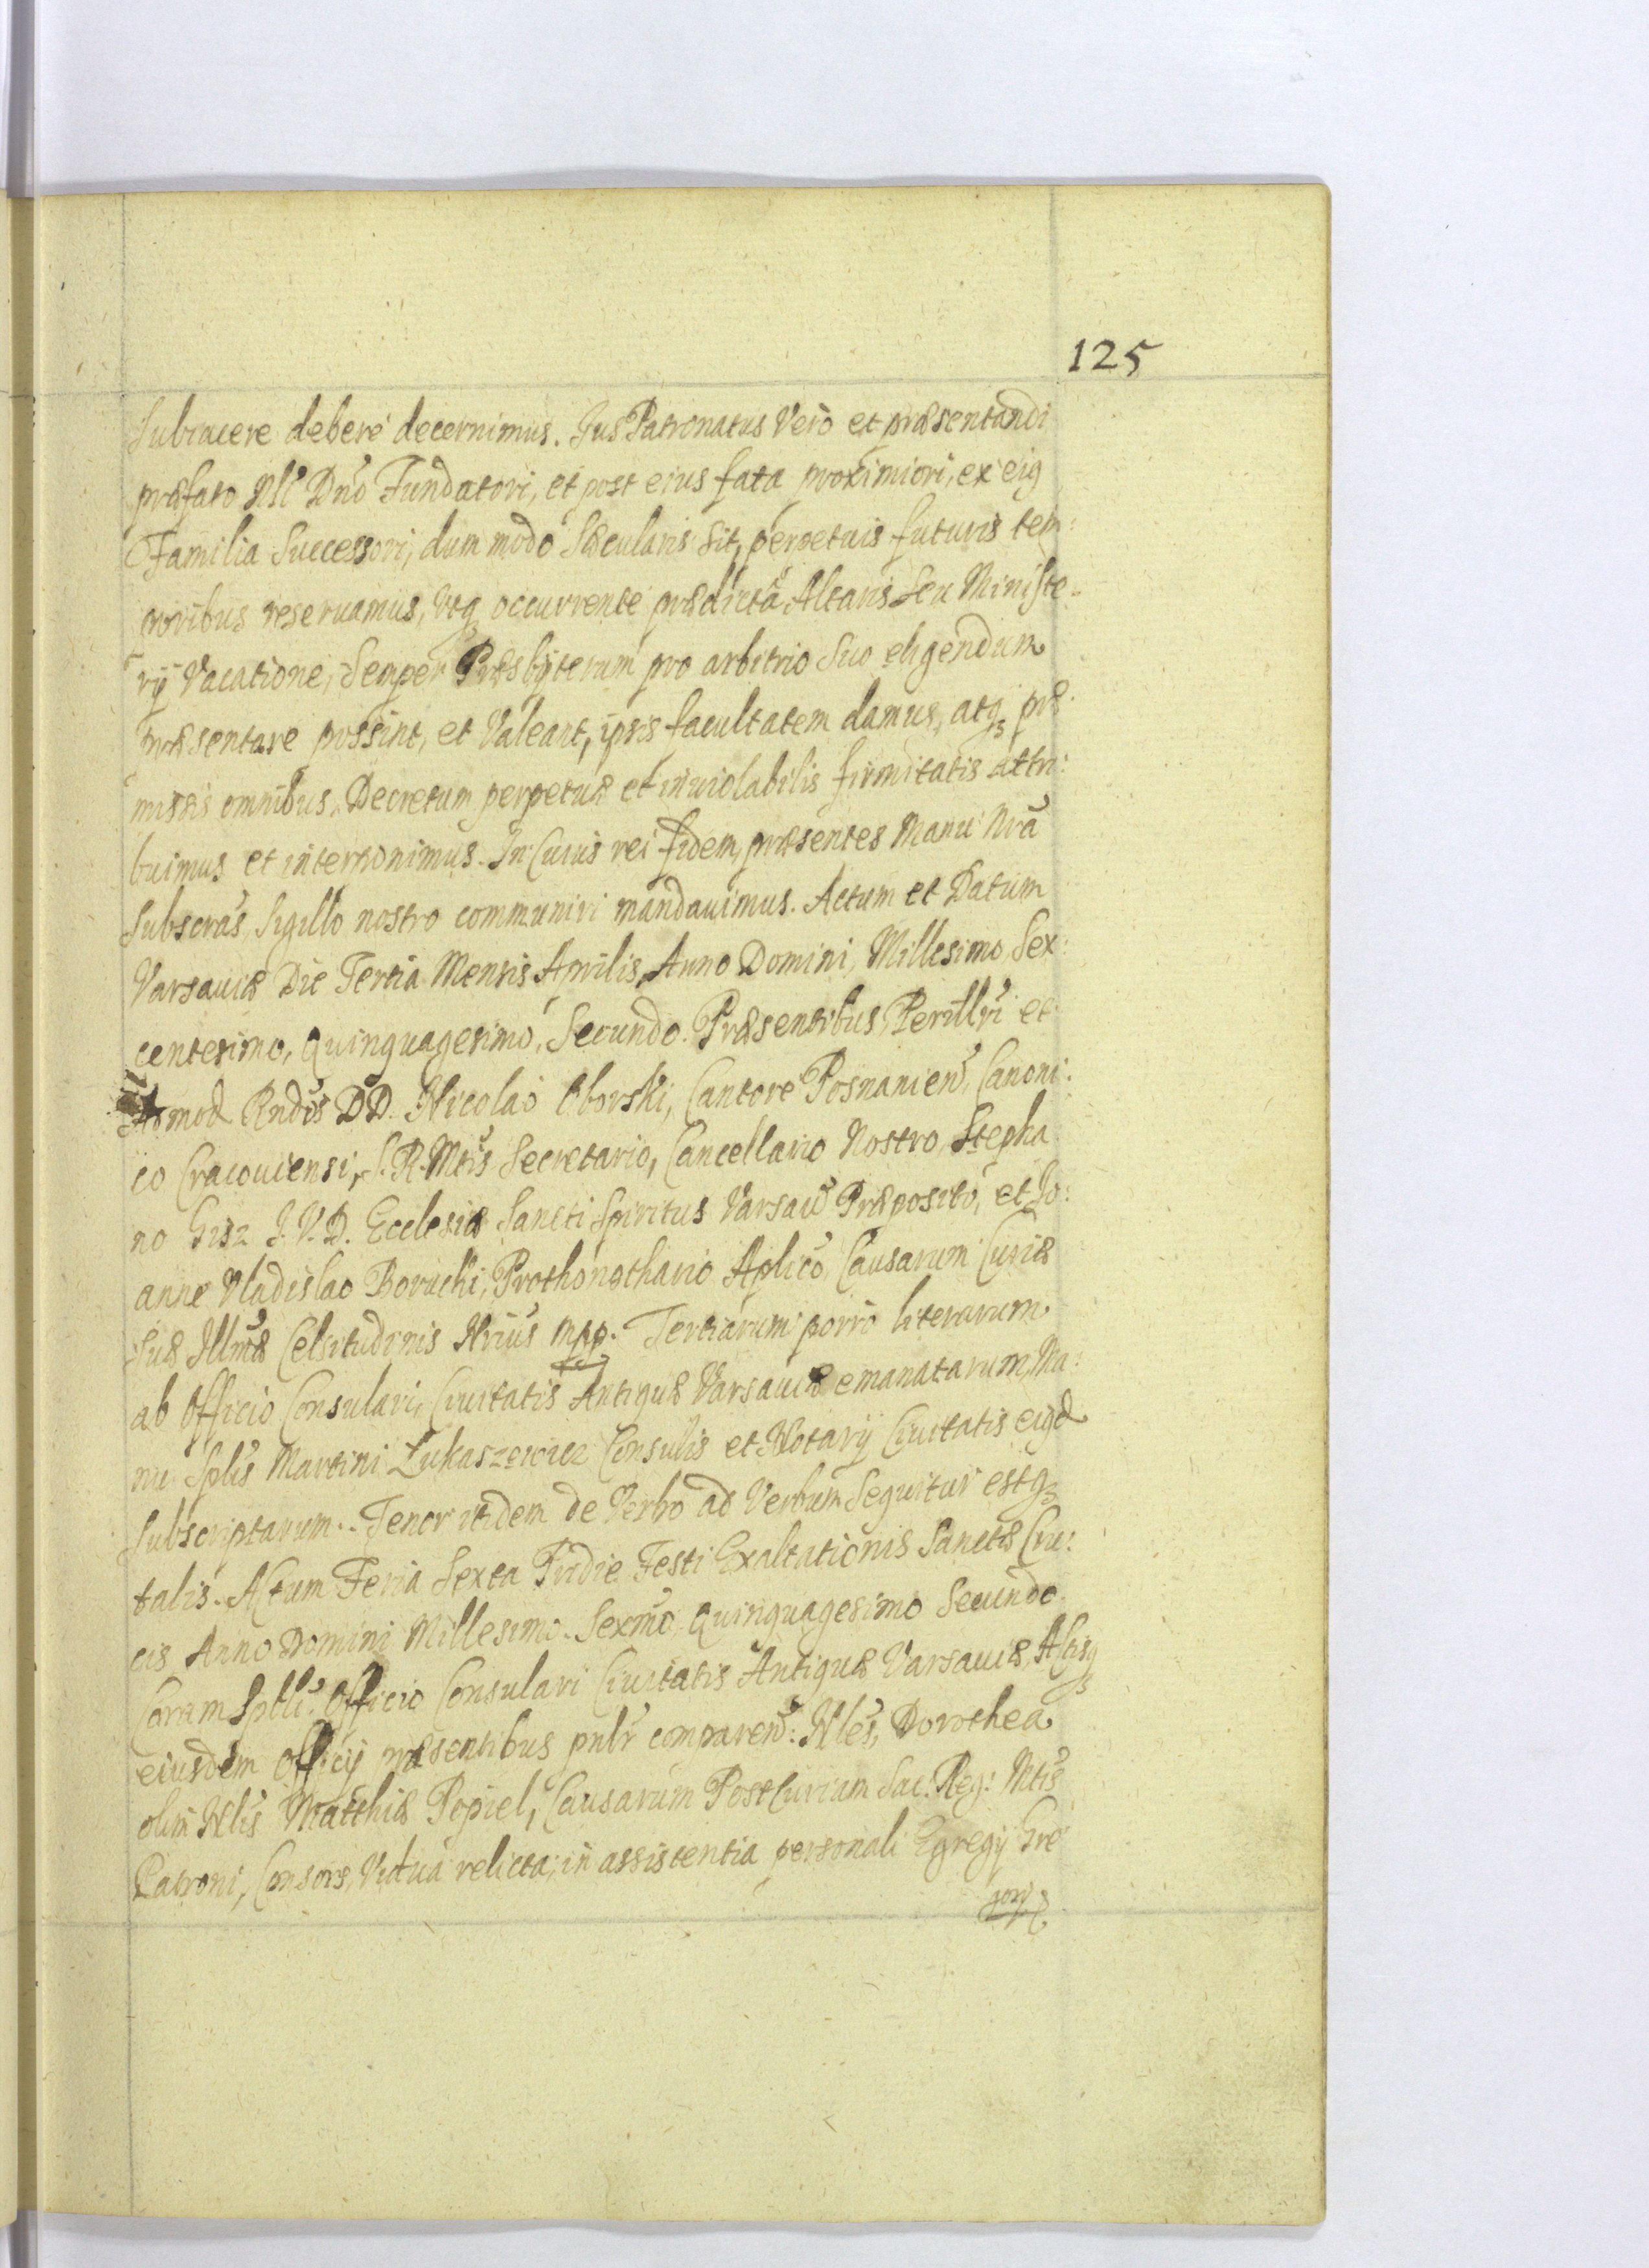 125
Subiacere debere decernimus. Jus Patronatus Verò et præsentandi
præfato Nli Dnō Fundatori, et post eius fata proximiori, ex eiꝗ
Familia Successori, dum modò Sæcularis sit, perpetuis futuris tem:
poribus reseruamus, Vtqꝫ occurrente prædicta Altaris seu Ministe:
rij Vacatione, Semper Præsbyterum pro arbitrio suo eligendum
præsentare possint, et Valeant, ipsis facultatem damus, atqꝫ præ:
missis omnibus, Decretum perpetuæ et inuiolabilis firmitatis attri:
buimus et interponimus. In Cuius rei fidem, præsentes Manu Nrā
Subscrās, Sigillo nostro communiri mandauimus. Actum et Datum
Varsauiæ Die Tertia Mensis Aprilis, Anno Domini, Millesimo Sex:
centesimo, Quinquagesimo, Secundo. Præsentibus, Perillri et
Admod Rndis DD. Nicolao Oborski, Cantore Posnanien, Canoni:
co Cracouiensi, S. R. Mtis Secretario, Cancellario Nostro, Stepha
no Gisz J. V. D. Ecclesiæ Sancti Spiritus Varsauꝫ Præposito, et Jo:
anne Vladislao Boruchi, Prothonothario Aplico, Causarum Curiæ
Suæ Illmæ Celsitudinis Nrius mpp. Tertiarum porrò literarum
ab Officio Consulari, Ciuitatis Antiquæ Varsauiæ emanatarum, Ma:
nu Splis Martini Łukaszewicz Consulis et Notarij Ciuitatis eiꝗd
Subscriptarum. Tenor itidem de Verbo ad Verbum Sequitur estqꝫ
talis. Actum Feria Sexta Pridie Festi Exaltationis Sanctæ Cru:
cis Anno Domini Millesimo. Sexmo, Quinquagesimo Secundo.
Coram Spbli Officio Consulari Ciuitatis Antiquæ Varsauiæ, Actisqꝫ
eiusdem Officij præsentibus pnlr comparen: Nles, Dorothea
olim Nlis Matthiæ Popiel, Causarum Post Curiam Sac: Reg: Mtis
Patroni, Consors, Vidua relicta, in assistentia personali Egregij Gre
gorij